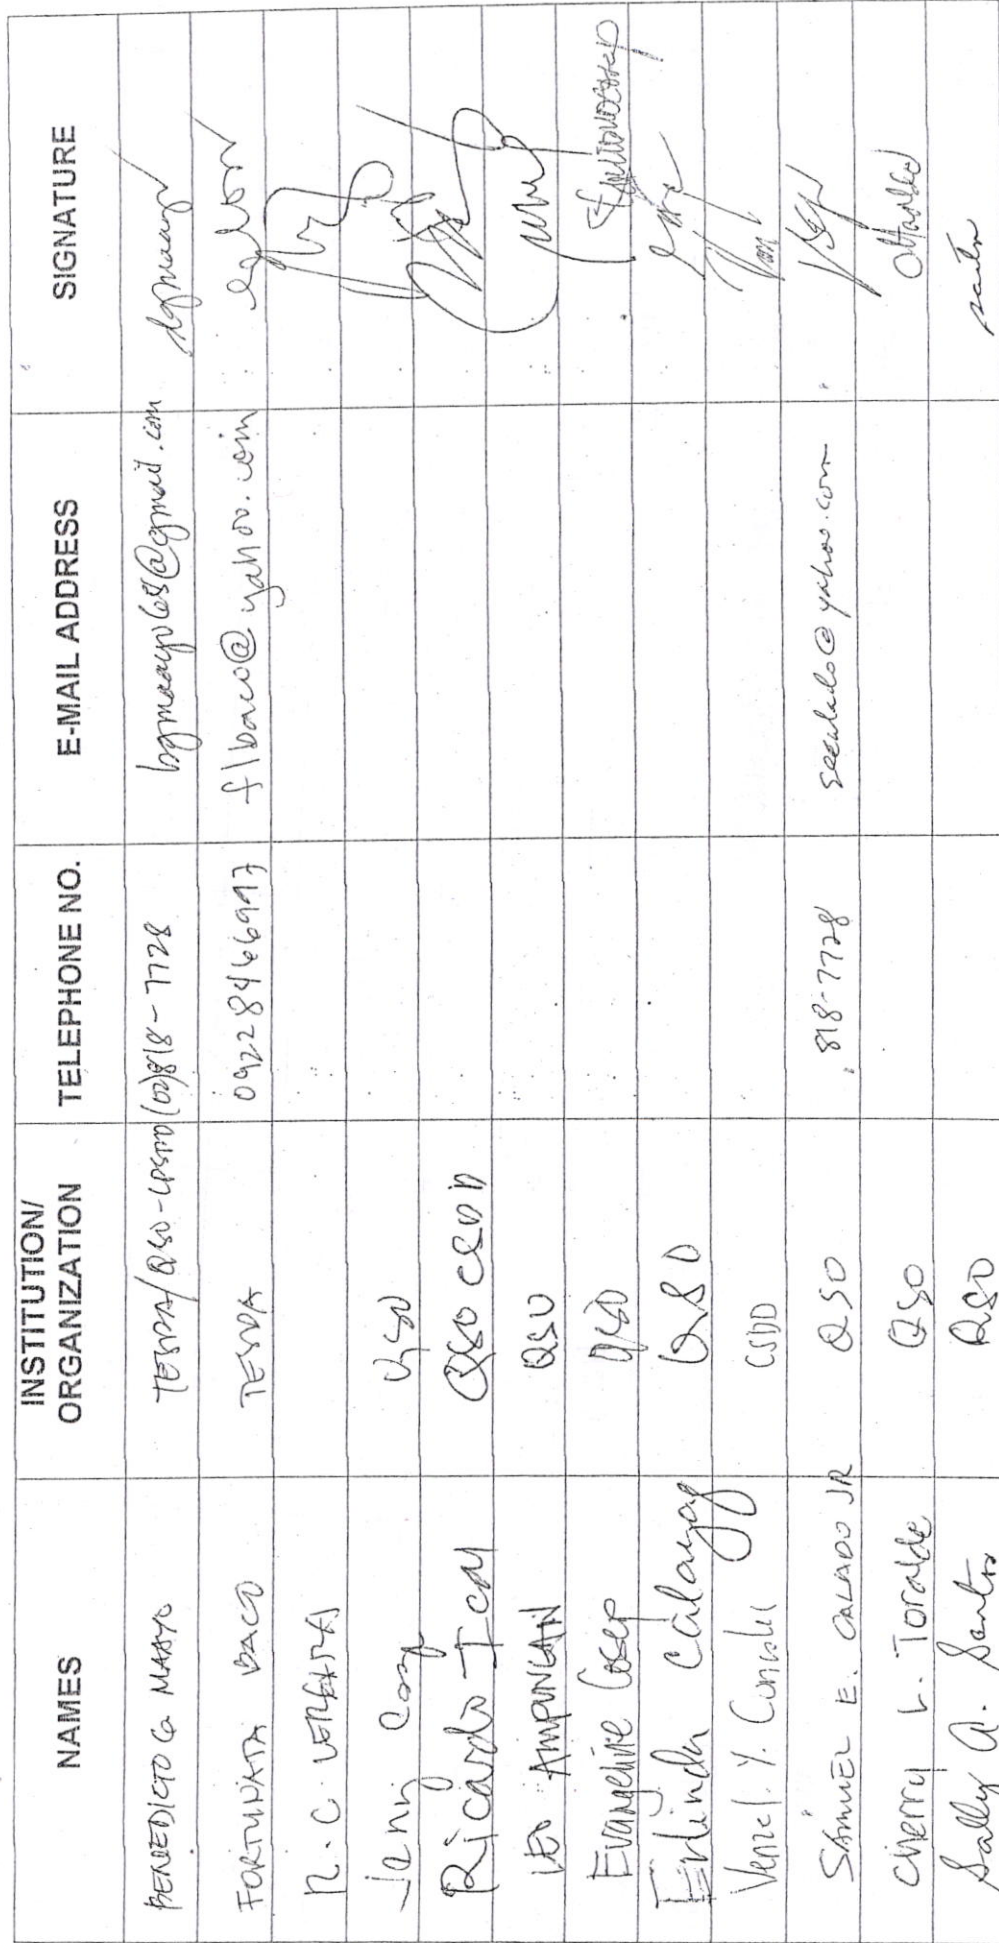 NAMES INSTITUTION/ ORGANIZATION TELEPHONE NO. E-MAIL ADDRESS SIGNATURE
BENEDICTO G MAAYO TESDA/QSO- (02)818-7728 bgmaayo68@gmail.com
FORTUNATA BACO TESDA 09228466997 flbaco@yahoo.com
R.C. VERGARA
QSO
Ricardo QSO CSDD
LEO AMPUNGAN QSO
Evangeline Cosep QSO
Erlinda Calayag QSO
Venzel Y. CSDD
SAMUEL E. CALADO JR QSO 818-7728 secalado@yahoo.com
Cherry L. Toralde QSO
Sally A. Santos QSO